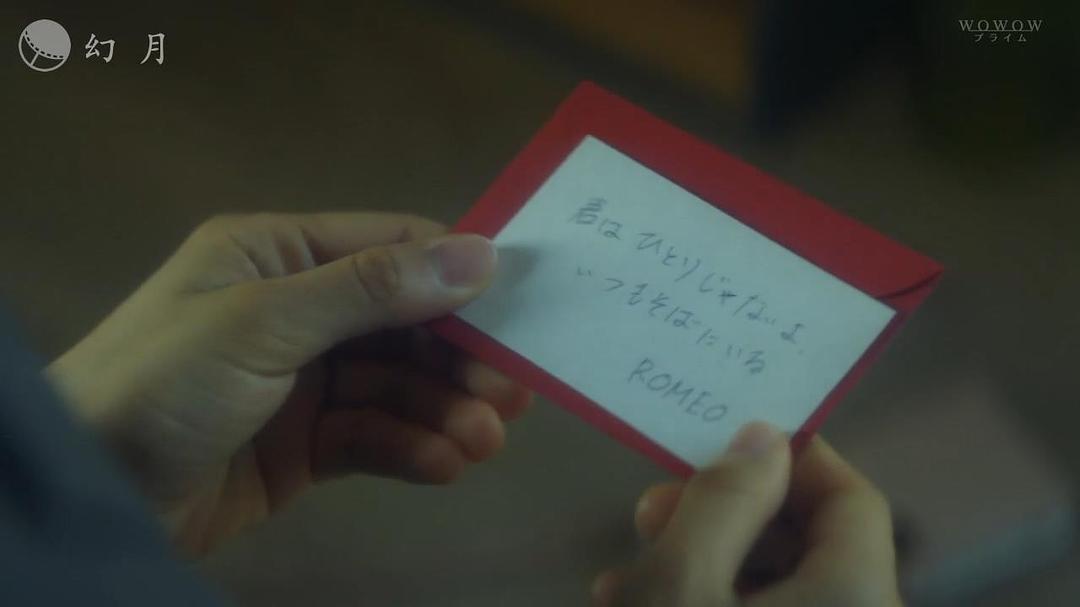 幻月
WOWOW
プライム
君はひとりじゃないよ.
いつもそばにいる
ROMEO